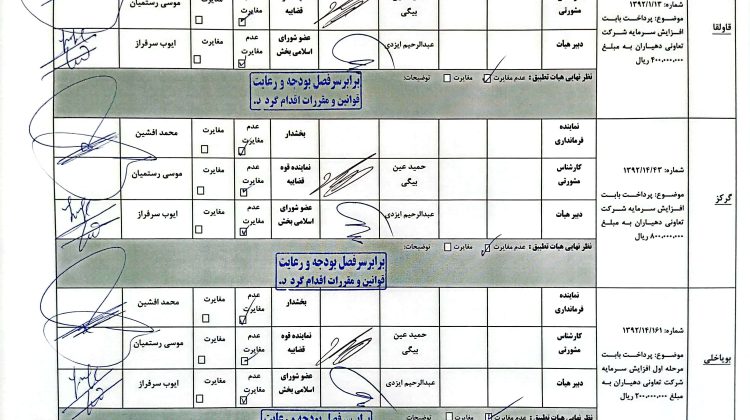 قاولقا
شماره: ۱۳۹۲/۱/۱۲
موضوع: پرداخت بابت
افزایش سرمایه شرکت
تعاونی دهیاران به مبلغ
۴۰۰,۰۰۰,۰۰۰ ریال
مشورتی
بیگی
قضاییه
مغایرت
موسی رستمیان
دبیر هیأت
عبدالرحیم ایزدی
عضو شورای
اسلامی بخش
عدم
مغایرت
مغایرت
ایوب سرفراز
نظر نهایی هیات تطبیق: عدم مغایرت مغایرت توضیحات:
برابر سرفصل بودجه و رعایت
قوانین و مقررات اقدام گردد.
گرکز
شماره: ۱۳۹۲/۱۴/۴۳
موضوع: پرداخت بابت
افزایش سرمایه شرکت
تعاونی دهیاران به مبلغ
۸۰۰,۰۰۰,۰۰۰ ریال
نماینده
فرمانداری
بخشدار
عدم
مغایرت
مغایرت
محمد افشین
کارشناس
مشورتی
حمید عین
بیگی
نماینده قوه
قضاییه
عدم
مغایرت
مغایرت
موسی رستمیان
دبیر هیأت
عبدالرحیم ایزدی
عضو شورای
اسلامی بخش
عدم
مغایرت
مغایرت
ایوب سرفراز
نظر نهایی هیات تطبیق: عدم مغایرت مغایرت توضیحات:
برابر سرفصل بودجه و رعایت
قوانین و مقررات اقدام گردد.
بویاخلی
شماره: ۱۳۹۲/۱۴/۱۶۱
موضوع: پرداخت بابت
مرحله اول افزایش سرمایه
شرکت تعاونی دهیاران به
مبلغ ۲۰۰,۰۰۰,۰۰۰ ریال
نماینده
فرمانداری
بخشدار
عدم
مغایرت
مغایرت
محمد افشین
کارشناس
مشورتی
حمید عین
بیگی
نماینده قوه
قضاییه
عدم
مغایرت
مغایرت
موسی رستمیان
دبیر هیأت
عبدالرحیم ایزدی
عضو شورای
اسلامی بخش
عدم
مغایرت
مغایرت
ایوب سرفراز
نظر نهایی هیات تطبیق: عدم مغایرت مغایرت توضیحات:
برابر سرفصل بودجه و رعایت